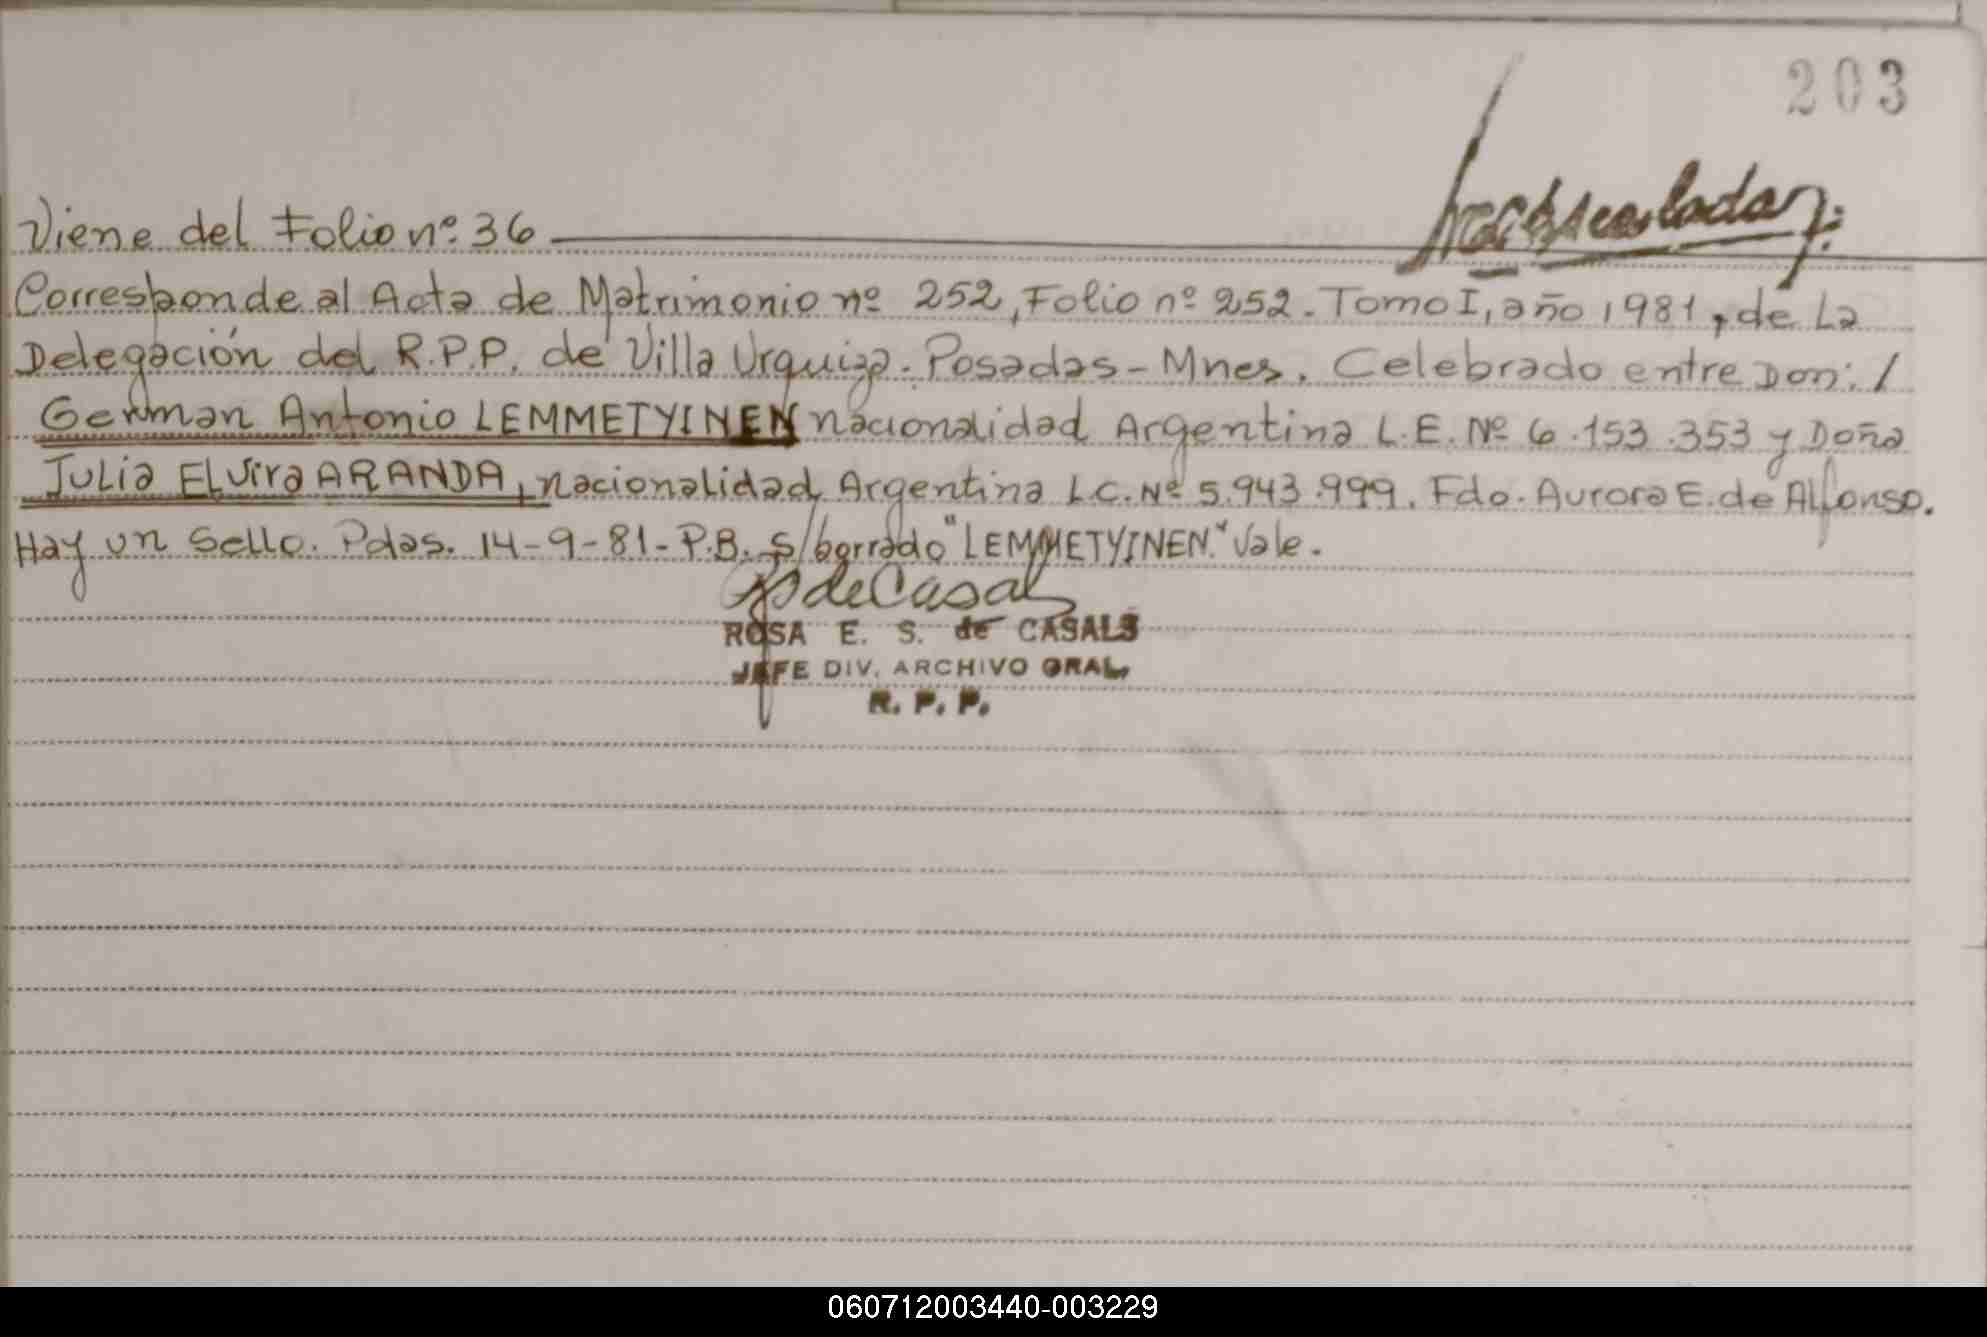 203
Viene del Folio nº 36
Corresponde al Acta de Matrimonio nº 252, Folio nº 252. Tomo I, año 1981, de La
Delegación del R.P.P. de Villa Urquiza. Posadas - Mnes. Celebrado entre Don: /
German Antonio LEMMETYINEN nacionalidad Argentina L.E. Nº 6.153.353 y Doña
Julia Elvira ARANDA, nacionalidad Argentina L.C. Nº 5.943.999. Fdo. Aurora E. de Alfonso.
Hay un Sello. Pdas. 14-9-81- P.B. s/borrado "LEMMETYINEN." Vale.
de Casals
ROSA E. S. de CASALS
JEFE DIV. ARCHIVO GRAL.
R. P. P.
060712003440-003229